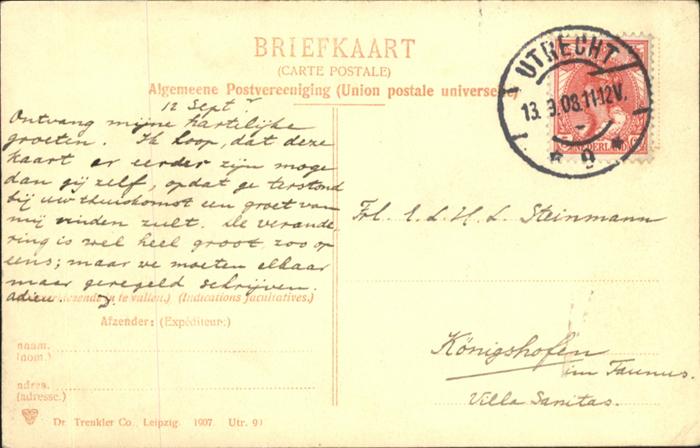 BRIEFKAART
(CARTE POSTALE)
Algemeene Postvereeniging (Union postale universelle)
UTRECHT
13. 3.08.11-12V.
* 9 *
NEDERLAND
12 Sept
Ontvang mijne hartelijke
groeten. Ik hoop, dat deze
kaart er eerder zijn moge
dan gij zelf, opdat ge terstond
bij uw thuiskomst een groet van
mij vinden zult. De verande-
ring is wel heel groot zoo op
eens; maar we moeten elkaar
maar geregeld schrijven.
adieu. J.
in te vullen.) (Indications facultatives.)
Afzender: (Expéditeur:)
naam.
(nom.)
adres.
(adresse.)
Frl. E. L. H. L. Steinmann
Königshofen
im Taunus.
Villa Sanitas.
Dr. Trenkler Co., Leipzig. 1907. Utr. 91